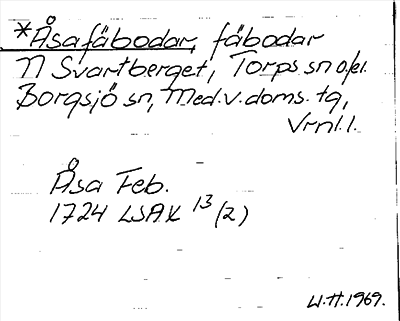 *Åsafäbodar, fäbodar
N Svartberget, Torps sn o./el.
Borgsjö sn, Med.v.doms. tg,
Vrnl.l.
Åsa Feb.
1724 LSAK 13 (2)
W.H.1969.